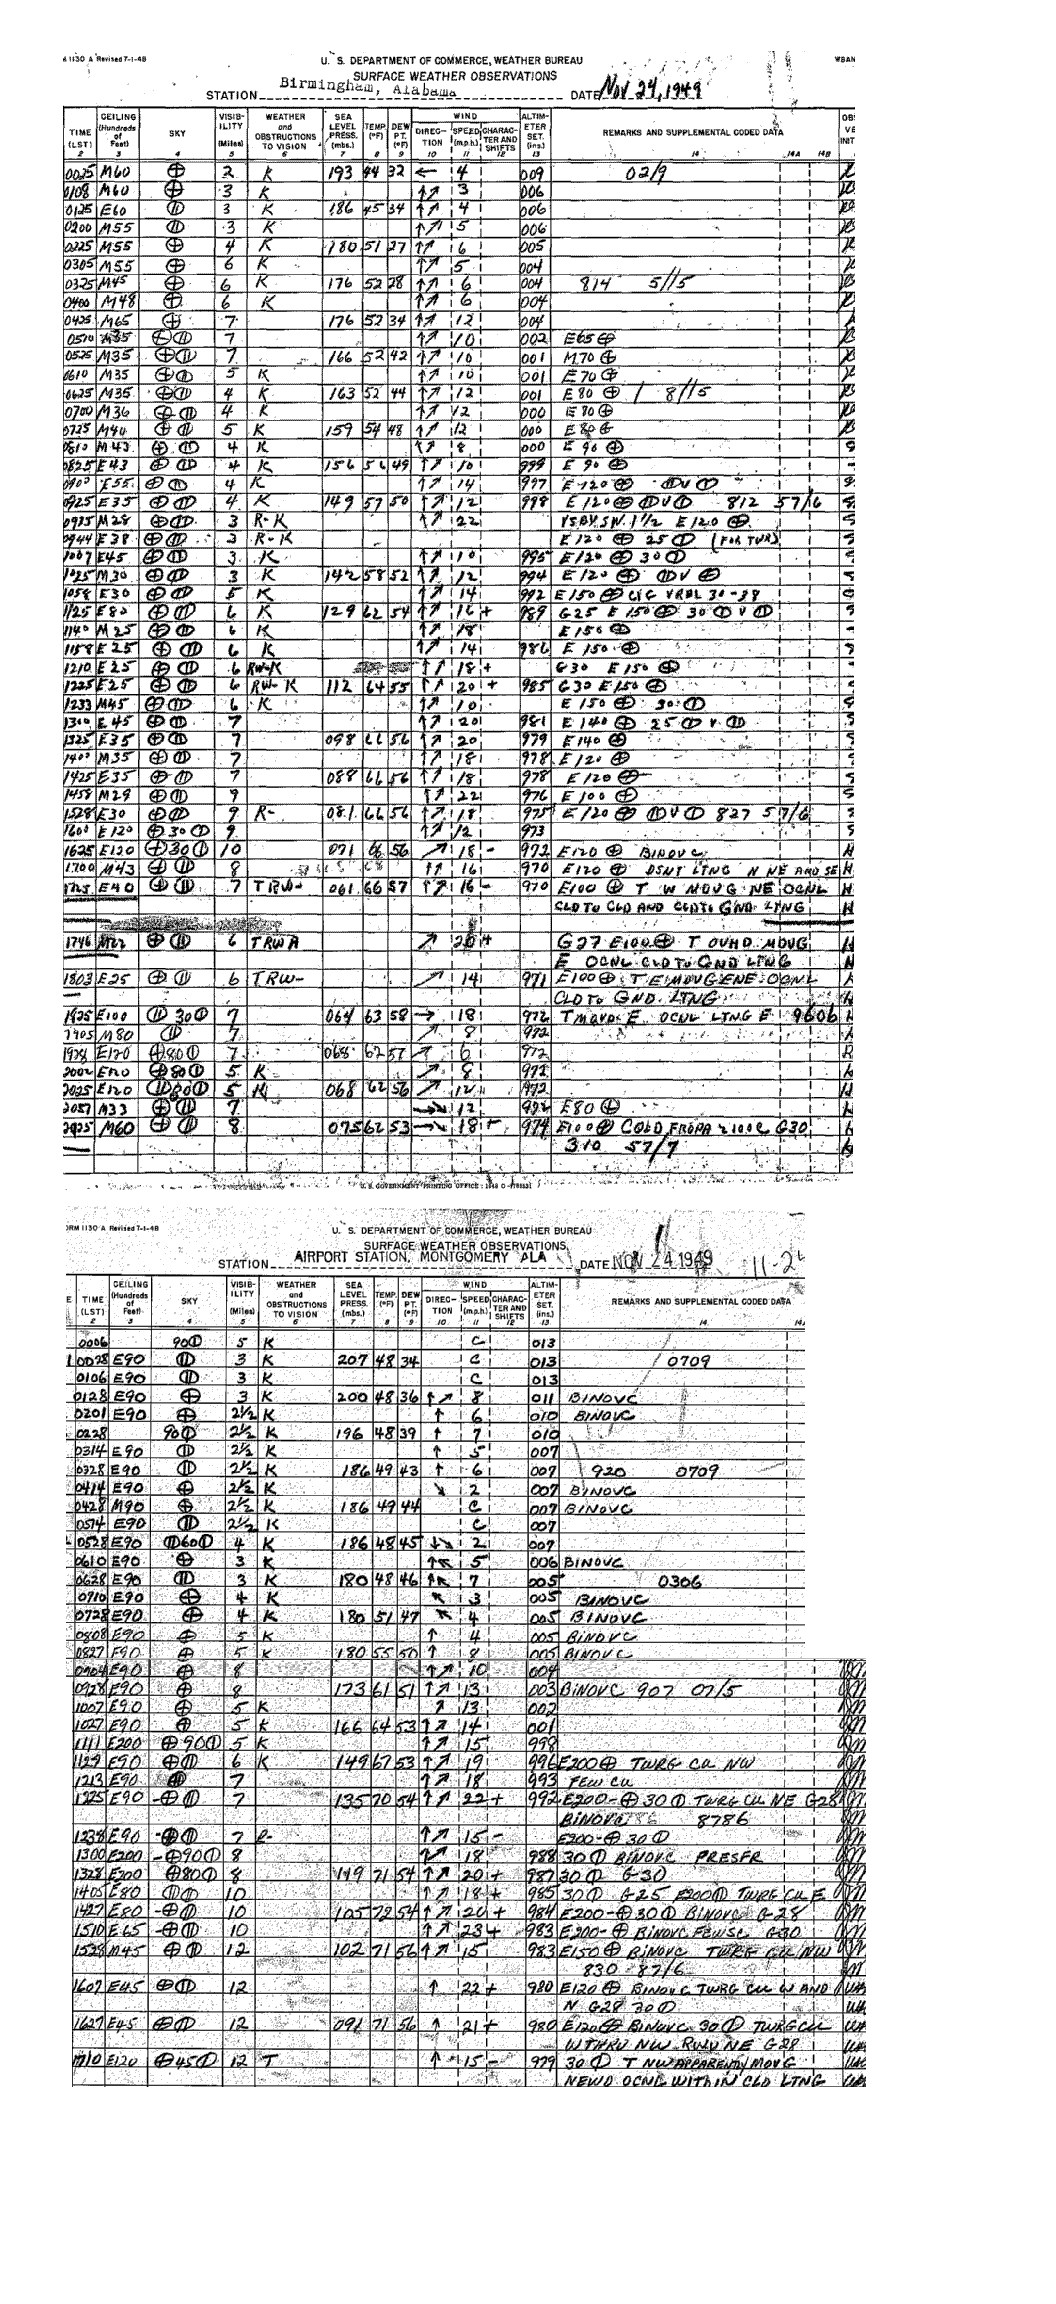 A 1130 A Revised 7-1-48 U. S. DEPARTMENT OF COMMERCE, WEATHER BUREAU WBAN
SURFACE WEATHER OBSERVATIONS
STATION Birmingham, Alabama DATE Nov 24, 1949
TIME (LST) CEILING (Hundreds of Feet) SKY VISIBILITY (Miles) WEATHER and OBSTRUCTIONS TO VISION SEA LEVEL PRESS. (mbs.) TEMP. (°F) DEW PT. (°F) WIND DIRECTION SPEED (m.p.h.) CHARACTER AND SHIFTS ALTIMETER SET. (ins.) REMARKS AND SUPPLEMENTAL CODED DATA
2 3 4 5 6 7 8 9 10 11 12 13 14 14A 14B
0025 M60 ⊕ 2 K 193 44 32 ← 4 009 02/9
0108 M60 ⊕ 3 K ↑↗ 3 006
0125 E60 ⦷ 3 K 186 45 34 ↑↗ 4 006
0200 M55 ⦷ 3 K ↑↗ 5 006
0225 M55 ⊕ 4 K 180 51 27 ↑↗ 6 005
0305 M55 ⊕ 6 K ↑↗ 5 004
0325 M45 ⊕ 6 K 176 52 28 ↑↗ 6 004 814 5//5
0400 M48 ⊕ 6 K ↑↗ 6 004
0425 M65 ⊕ 7 176 52 34 ↑↗ 12 004
0510 M35 ⊕⦷ 7 ↑↗ 10 002 E65⊕
0525 M35 ⊕⦷ 7 166 52 42 ↑↗ 10 001 M70⊕
0610 M35 ⊕⦷ 5 K ↑↗ 10 001 E70⊕
0625 M35 ⊕⦷ 4 K 163 52 44 ↑↗ 12 001 E80 ⊕ / 8//5
0700 M36 ⊕⦷ 4 K ↑↗ 12 000 E80⊕
0725 M40 ⊕⦷ 5 K 159 54 48 ↑↗ 12 000 E80⊕
0810 M43 ⊕⦷ 4 K ↑↗ 8 000 E90⊕
0825 E43 ⊕⦷ 4 K ↑↗ 10 999 E90⊕
0900 E55 ⊕⦷ 4 K ↑↗ 14 997 E120⊕ ⦷V⦶
0925 E35 ⊕⦷ 4 K 149 57 50 ↑↗ 12 998 E120⊕ ⦷V⦶ 812 57/6
0935 M28 ⊕⦷ 3 R-K ↑↗ 22 VSBY SW 1½ E120⊕
0944 E38 ⊕⦷ 3 R-K E120⊕ 25⦶ (FOR TWR)
1007 E45 ⊕⦷ 3 K ↑↗ 10 995 E120⊕ 30⦶
1025 M30 ⊕⦷ 3 K 142 58 52 ↑↗ 12 994 E120⊕ ⦷V⊕
1058 E30 ⊕⦷ 5 K ↑↗ 14 992 E150⊕ CIG VRBL 30-38
1125 E80 ⊕⦷ 6 K 129 62 54 ↑↗ 16+ 989 G25 E150⊕ 30⦶V⦷
1140 M25 ⊕⦷ 6 K ↑↗ 18 E150⊕
1158 E25 ⊕⦷ 6 K ↑↗ 14 986 E150⊕
1210 E25 ⊕⦷ 6 RW-K ↑↗ 18+ G30 E150⊕
1225 E25 ⊕⦷ 6 RW-K 112 64 55 ↑↗ 20+ 985 G30 E150⊕
1233 M45 ⊕⦷ 6 K ↑↗ 10 E150⊕ 30⦶
1300 E45 ⊕⦷ 7 ↑↗ 20 981 E140⊕ 25⦶V⦷
1325 E35 ⊕⦷ 7 098 66 56 ↑↗ 20 979 E140⊕
1400 M35 ⊕⦷ 7 ↑↗ 18 978 E120⊕
1425 E35 ⊕⦷ 7 088 66 56 ↑↗ 18 978 E120⊕
1458 M29 ⊕⦷ 9 ↑↗ 22 976 E100⊕
1528 E30 ⊕⦷ 9 R- 081 66 56 ↑↗ 18 975 E120⊕ ⦷V⦶ 827 57/6
1600 E120 ⊕30⦶ 9 ↑↗ 12 973
1625 E120 ⊕30⦶ 10 071 66 56 ↗ 18- 972 E120⊕ BINOVC
1700 M43 ⊕⦷ 8 ↑↑ 16 970 E120⊕ DSNT LTNG N NE AND SE
1725 E40 ⊕⦷ 7 TRW- 061 66 57 ↑↗ 16- 970 E100⊕ T W MOVG NE OCNL
CLD TO CLD AND CLD TO GND LTNG
1746 ⊕⦷ 6 TRW A ↗ 20+ G27 E100⊕ T OVHD MOVG
E OCNL CLD TO GND LTNG
1803 E25 ⊕⦷ 6 TRW- ↗ 14 971 E100⊕ T E MOVG ENE OCNL
CLD TO GND LTNG
1825 E100 ⦷30⦶ 7 064 63 58 → 18 972 T MOVD E OCNL LTNG E 9606
1905 M80 ⦷ 7 ↗ 8 972
1928 E120 ⊕80⦶ 7 068 62 57 ↗ 6 972
2002 E120 ⊕80⦶ 5 K ↗ 8 972
2025 E120 ⦷80⦶ 5 K 068 62 56 ↗ 12 972
2057 M33 ⊕⦷ 7 →↘ 12 E80⊕
M60 ⊕⦷ 8 075 62 53 →↘ 18+ 974 E100⊕ COLD FROPA 2100C G30
310 57/7
U.S. GOVERNMENT PRINTING OFFICE
ORM 1130 A Revised 7-1-48 U. S. DEPARTMENT OF COMMERCE, WEATHER BUREAU
SURFACE WEATHER OBSERVATIONS
STATION AIRPORT STATION, MONTGOMERY ALA DATE NOV 24 1949 11-2
E TIME (LST) CEILING (Hundreds of Feet) SKY VISIBILITY (Miles) WEATHER and OBSTRUCTIONS TO VISION SEA LEVEL PRESS. (mbs.) TEMP. (°F) DEW PT. (°F) WIND DIRECTION SPEED (m.p.h.) CHARACTER AND SHIFTS ALTIMETER SET. (ins.) REMARKS AND SUPPLEMENTAL CODED DATA
2 3 4 5 6 7 8 9 10 11 12 13 14
0006 90⦶ 5 K C 013
0028 E90 ⦷ 3 K 207 48 34 C 013 / 0709
0106 E90 ⦷ 3 K C 013
0128 E90 ⊕ 3 K 200 48 36 ↑↗ 8 011 BINOVC
0201 E90 ⊕ 2½ K ↑ 6 010 BINOVC
0228 90⦶ 2½ K 196 48 39 ↑ 7 010
0314 E90 ⦷ 2½ K ↑ 5 007
0328 E90 ⦷ 2½ K 186 49 43 ↑ 6 007 920 0709
0414 E90 ⊕ 2½ K ↘ 2 007 BINOVC
0428 M90 ⊕ 2½ K 186 49 44 C 007 BINOVC
0514 E90 ⦷ 2½ K C 007
0528 E90 ⦷60⦶ 4 K 186 48 45 ↓↘ 2 007
0610 E90 ⊕ 3 K ↑↖ 5 006 BINOVC
0628 E90 ⦷ 3 K 180 48 46 ↑↖ 7 005 0306
0710 E90 ⊕ 4 K ↖ 3 005 BINOVC
0728 E90 ⊕ 4 K 180 51 47 ↖ 4 005 BINOVC
0808 E90 ⊕ 5 K ↑ 4 005 BINOVC
0827 E90 ⊕ 5 K 180 55 50 ↑ 8 005 BINOVC
0904 E90 ⊕ 8 ↑↗ 10 004
0928 E90 ⊕ 8 173 61 51 ↑↗ 13 003 BINOVC 907 07/5
1007 E90 ⊕ 5 K ↗ 13 002
1027 E90 ⊕ 5 K 166 64 53 ↑↗ 14 001
1111 E200 ⊕90⦶ 5 K ↑↗ 15 998
1129 E90 ⊕⦷ 6 K 149 67 53 ↑↗ 19 996 E200⊕ TWRG CU NW
1213 E90 7 ↑↗ 18 993 FEW CU
1225 E90 -⊕⦷ 7 135 70 54 ↑↗ 22+ 992 E200-⊕ 30⦶ TWRG CU NE G28
BINOVC 8786
1238 E90 -⊕⦷ 7 R- ↑↗ 15- E200-⊕ 30⦶
1300 E200 -⊕90⦶ 8 ↑↗ 18 988 30⦶ BINOVC PRESFR
1328 E200 ⊕80⦶ 8 119 71 54 ↑↗ 20+ 987 30⦶ G-30
1405 E80 ⦷⦷ 10 ↑↗ 18+ 985 30⦶ G-25 E200⦷ TWRG CU E
1427 E80 -⊕⦷ 10 105 72 54 ↑↗ 20+ 984 E200-⊕ 30⦶ BINOVC G-28
1510 E65 -⊕⦷ 10 ↑↗ 23+ 983 E200-⊕ BINOVC FEW SC G30
1528 M45 ⊕⦷ 12 102 71 56 ↑↗ 15 983 E150⊕ BINOVC TWRG CU NW
830 87/6
1607 E45 ⊕⦷ 12 ↑ 22+ 980 E120⊕ BINOVC TWRG CU W AND
N G28 30⦶
1627 E45 ⊕⦷ 12 091 71 56 ↑ 21+ 980 E120⊕ BINOVC 30⦶ TWRG CU
W THRU NW RWU NE G28
1710 E120 ⊕45⦶ 12 T ↑ 15- 979 30⦶ T NW APPARENTLY MOVG
NEWD OCNL WITHIN CLD LTNG